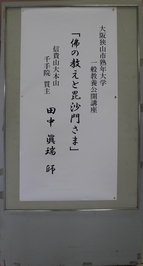 大阪狭山市熟年大学
一般教養公開講座
「佛の教えと毘沙門さま」
信貴山大本山
千手院 貫主
田中 眞瑞 師